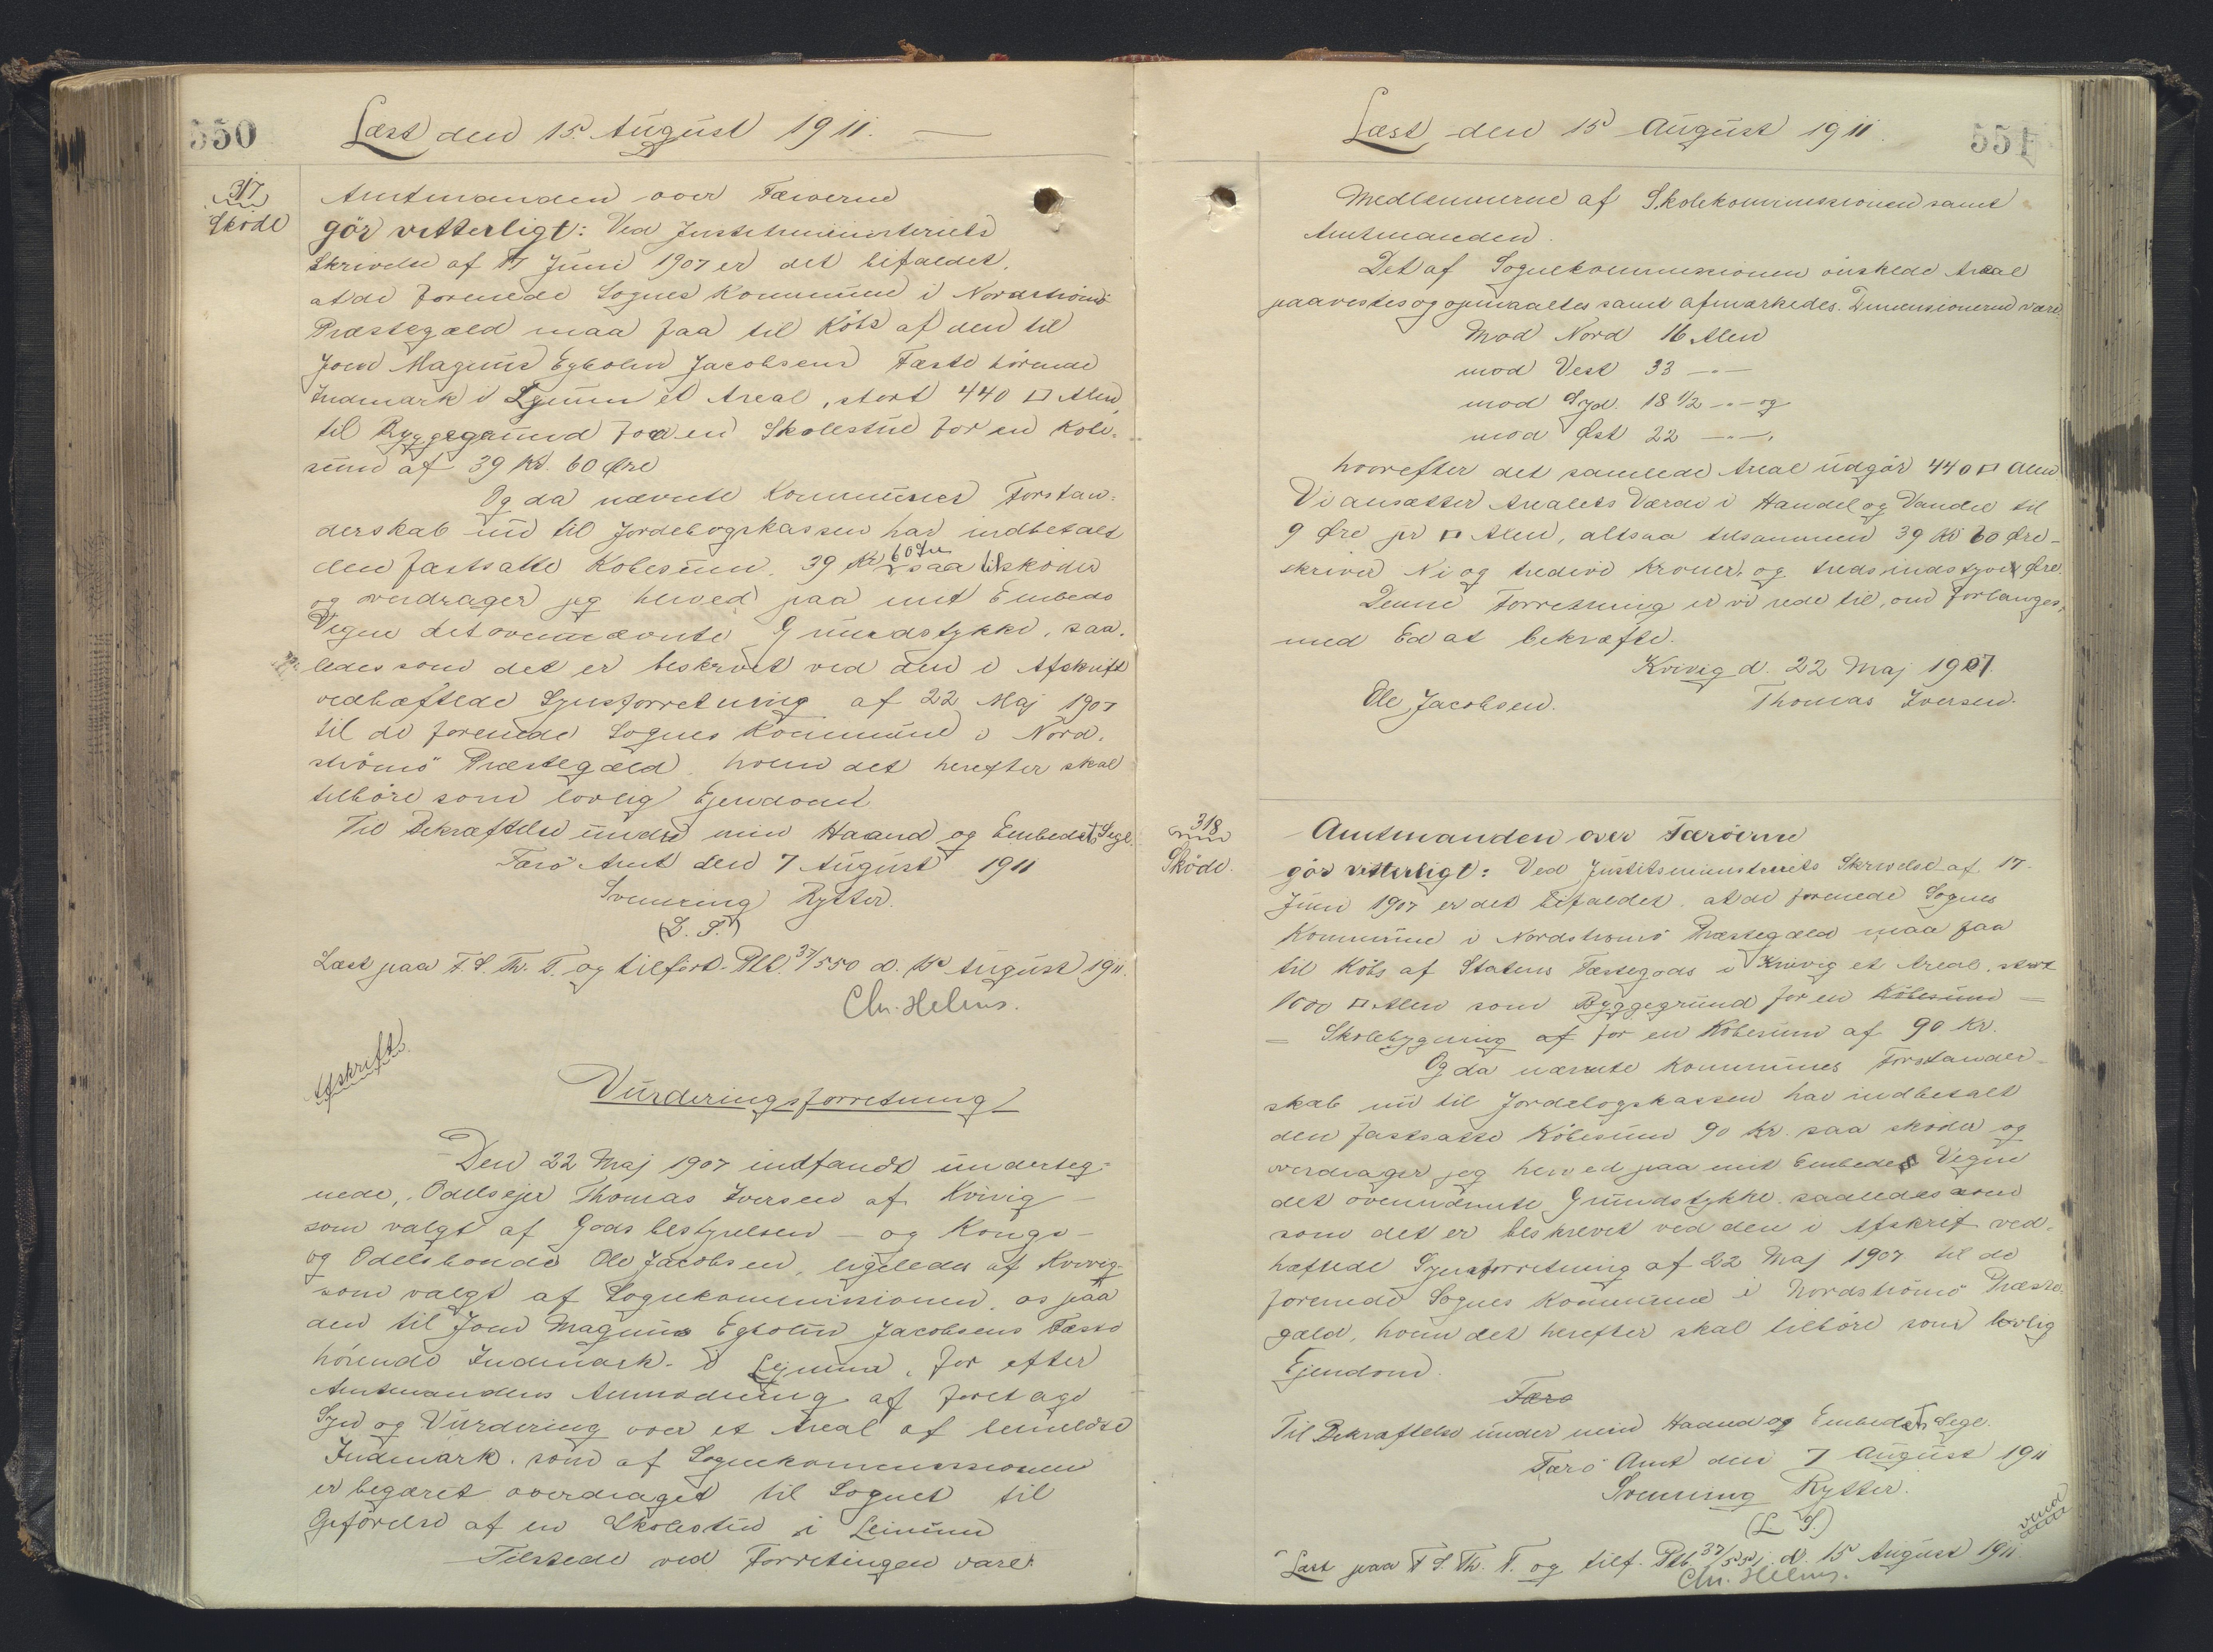 550
Læst den 15. August 1911.
317
Skøde
Amtmanden over Færøerne
gör vitterligt: Ved Justitsministeriets
Skrivelse af 17 Juni 1907 er det bifaldet,
at de forenede Sognes Kommune i Nordströmö
Præstegæld maa faa til Köbs af den til
Joen Magnus Egholm Jacobsens Fæste hörende
Indmark i Lejnum et Areal, stort 440 □ Alen,
til Byggegrund for en Skolestue for en Köbe-
sum af 39 Kr. 60 Øre
Og da nævnte Kommunes Forstan-
derskab nu til Jordebogskassen har indbetalt
den fastsatte Köbesum, 39 Kr 60 Øre saa tilskøder
og overdrager jeg herved paa mit Embeds
Vegne det ovennævnte Grundstykke, saa-
ledes som det er beskrevet ved den i Afskrift
vedhæftede Synsforretning af 22 Maj 1907
til de forenede Sognes Kommune i Nord-
strömö Præstegæld, hvem det herefter skal
tilhöre som lovlig Ejendom
Til Bekræftelse under min Haand og Embedets Segl.
Færö Amt den 7 August 1911
Svenning Rytter.
(L. S.)
Læst paa F. S. Th. T. og tilfört Ptb. 37/550 d. 15 August 1911.
Chr. Helms.
Afskrift.
Vurderingsforretning
Den 22 Maj 1907 indfandt underteg-
nede, Odelsejer Thomas Iversen af Kvivig
som valgt af Godsbestyrelsen – og Kongs-
og Odelsbonde Ole Jacobsen, ligeledes af Kvivig
som valgt af Sognekommissionen, os paa
den til Joen Magnus Egholm Jacobsens Fæste
hörende Indmark i Lejnum, for efter
Amtmandens Anmodning af foretage
Syn og Vurdering over et Areal af bemeldte
Indmark, som af Sognekommissionen
er begæret overdraget til Sognet til
Opförelse af en Skolestue i Leinum
Tilstede ved Forretningen vare:
Læst den 15 August 1911.
551
Medlemmerne af Skolekommissionen samt
Amtmanden.
Det af Sognekommissionen önskede Areal
paavistes og opmaaltes samt afmærkedes. Dimensionerne vare:
Mod Nord 16 Alen
mod Vest 33 –„–
mod Syd. 18 1/2 –„– og
mod Øst 22 –„–,
hvorefter det samlede Areal udgör 440 □ Alen
Vi ansætter Arealets Værdi i Handel og Vandel til
9 Øre pr □ Alen, altsaa tilsammen 39 Kr 60 Øre –
skriver Ni og tredive Kroner og tredsindstyve Øre.
Denne Forretning er vi rede til, om forlanges,
med Ed at bekræfte.
Kvivig d. 22 Maj 1907.
Ole Jacobsen. Thomas Iversen.
318
Sköde.
Amtmanden over Færöerne
gör vitterligt: Ved Justitsministeriets Skrivelse af 17
Juni 1907 er det bifaldet, at de forenede Sognes
Kommune i Nordströmö Præstegæld maa faa
til Köbs af Statens Fæstegods i Kvivig et Areal, stort
1000 □ Alen som Byggegrund for en Köbesum =
= Skolebygning af for en Köbesum af 90 Kr.
Og da nævnte Kommunes Forstander-
skab nu til Jordebogskassen har indbetalt
den fastsatte Köbesum 90 Kr. saa skøder og
overdrager jeg herved paa mit Embedes Vegne
det ovennævnte Grundstykke saaledes som
som det er beskrevet ved den i Afskrift ved-
hæftede Synsforretning af 22 Maj 1907 til de
forenede Sognes Kommune i Nordströmö Præste-
gæld, hvem det herefter skal tilhöre som lovlig
Ejendom.
Færö
Til Bekræftelse under min Haand og Embedets Segl.
Færö Amt den 7 August 1911
Svenning Rytter.
(L. S.)
Læst paa F. S. Th. T. og tilf. Ptb. 37/551. d. 15 August 1911
Chr. Helms.
vend